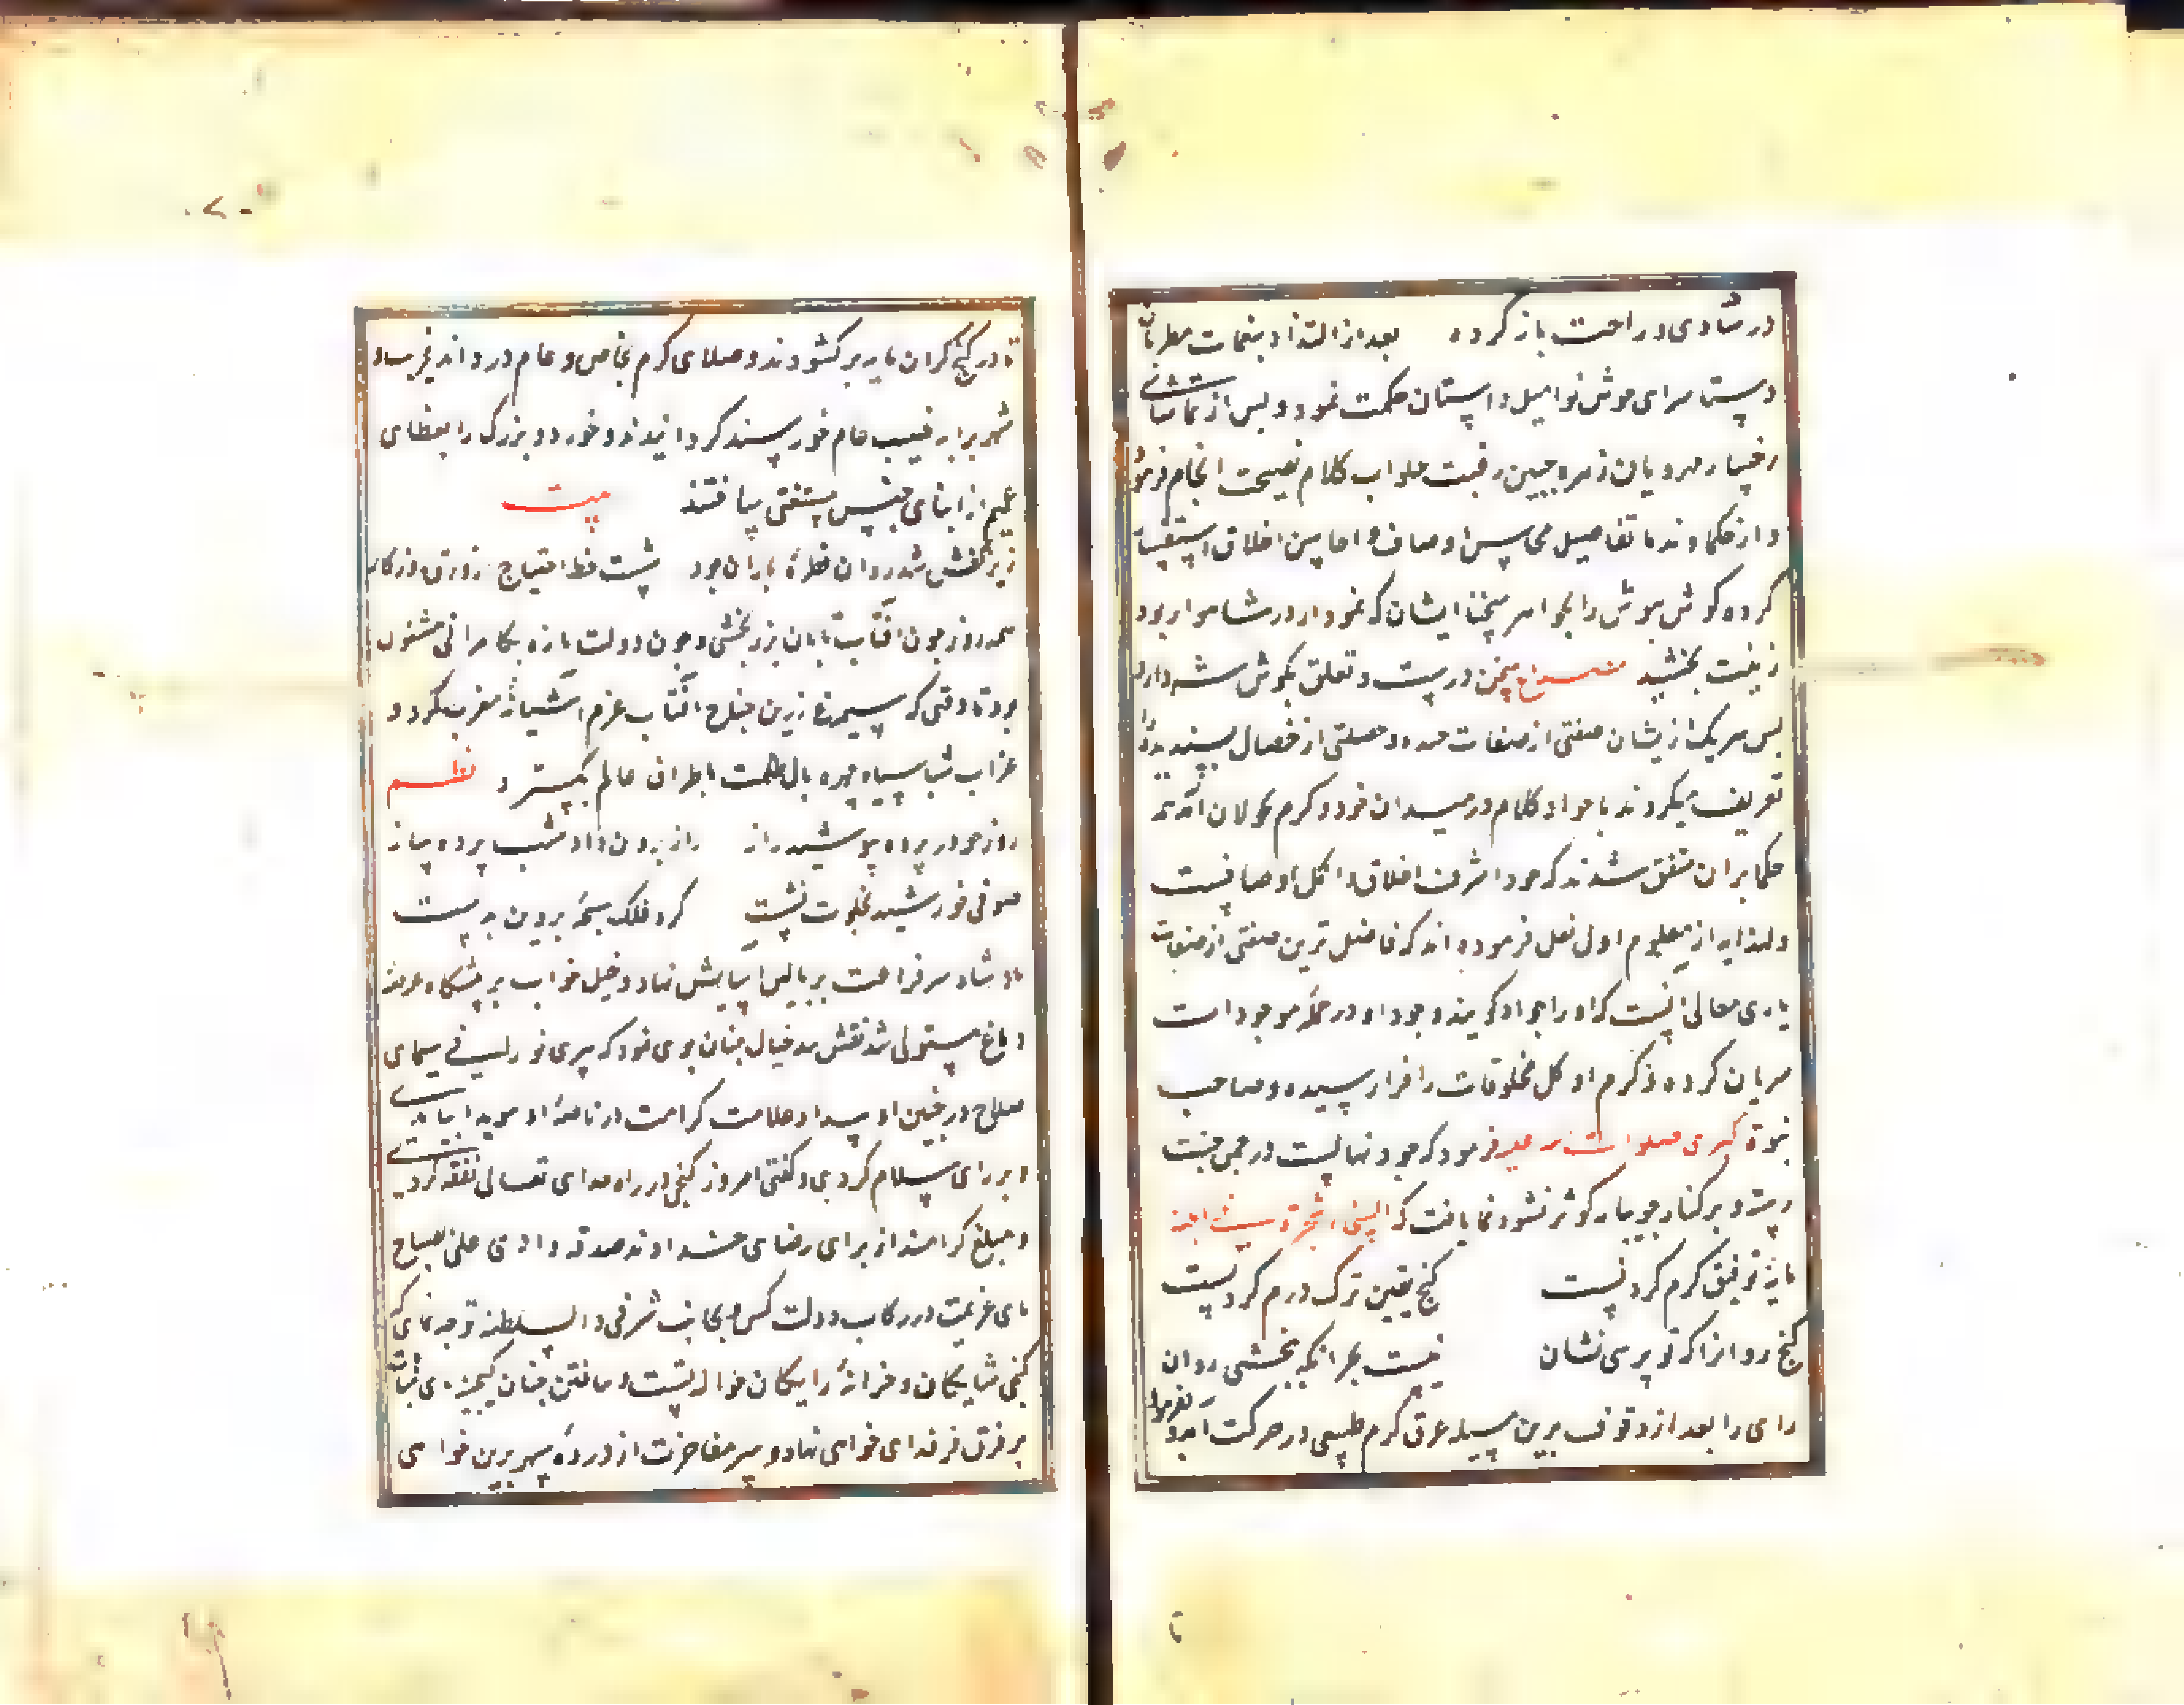 در شادی و راحت باز کرده بعد از التذاذ بنغمات مطربان
دستان سرای هوش نوا میل داستان حکمت نمود و پس از تماشای
رخسار مهرویان زهره جبین رغبت جلواب کلام نصیحت انجام فرمود
و از حکما و ندما تفاصیل محاسن اوصاف و احاسن اخلاق استفسار
کرده گوش هوش را بجواهر سخنان ایشان که نمودار در شاهوار بود
زینت بخشید مصراع سخن درست و تعلق بگوش شه دارد
پس هر یک از یشان صفتی از صفات حمیده و خصلتی از خصال پسندیده را
تعریف میکردند تا جواد کلام در میدان جود و کرم بجولان آمد همه
حکما بران متفق شدند که جود اشرف اخلاق و اکمل اوصافست
ولهذا از معلم اول نقل فرموده اند که فاضل ترین صفتی از صفات
باری تعالی انست که او را جواد گویند و جود او در جمله موجودات
سریان کرده و کرم او کل مخلوقات را فرا رسیده و صاحب
نبوة کبری صلوات الله علیه فرمود که جود نهالیست در چمن جنت
رسته و بر کنار جویبار کوثر نشو و نما یافته که السخاء شجرة فی الجنة
مایه توفیق کرم کردنست گنج یقین ترک درم کردنست
گنج روانرا که تو پرسی نشان نیست بجز آنکه ببخشی روان
رای را بعد از وقوف برین مسئله عرق کرم طبیعی در حرکت آمد بفرمود
تا در گنج گران مایه بر گشودند و صلای کرم بخاص و عام در دادند غریب و
شهری را به نصیب عام خورسند گردانیدند و خورد و بزرگ را بعطای
عمیم از ابنای جنس مستغنی ساختند بیت
زیر کفش شد روان قطره باران جود شست خط احتیاج از ورق روزگار
همه روز چون آفتاب تابان بزر بخشی و چون دولت تازه بکامرانی مشغول
بود تا وقتی که سیمرغ زرین جناح آفتاب عزم آشیانه مغرب کرد و
غراب شب سیاه چهره بال ظلمت باطراف عالم بگسترد نظم
روز چو در پرده پوشید راز راز برون داد شب پرده ساز
صوفی خورشید بخلوت نشست کرد فلک سبحه پروین بدست
پادشاه سر فراغت بر بالین آسایش نهاد و خیل خواب بر پیشگاه عرصه
دماغ مستولی شد نقش بند خیال چنان بوی نمود که پیری نورانی سیمای
صلاح در جبین او پیدا و علامت کرامت از ناصیه او هویدا بیامدی
و بر رای سلام کردی و گفتی امروز گنجی در راه خدای تعالی نفقه کردی
و مبلغی گرامند از برای رضای خداوند صدقه دادی علی الصباح
پای عزیمت در رکاب دولت کن و بجانب شرقی دار السلطنه توجه نمای که
گنجی شایگان و خزانه رایگان حواله تست و بیافتن چنان گنجینه پای مباهات
بر فرق فرقدان خواهی نهاد و سر مفاخرت از ذروه سپهر برین خواهی